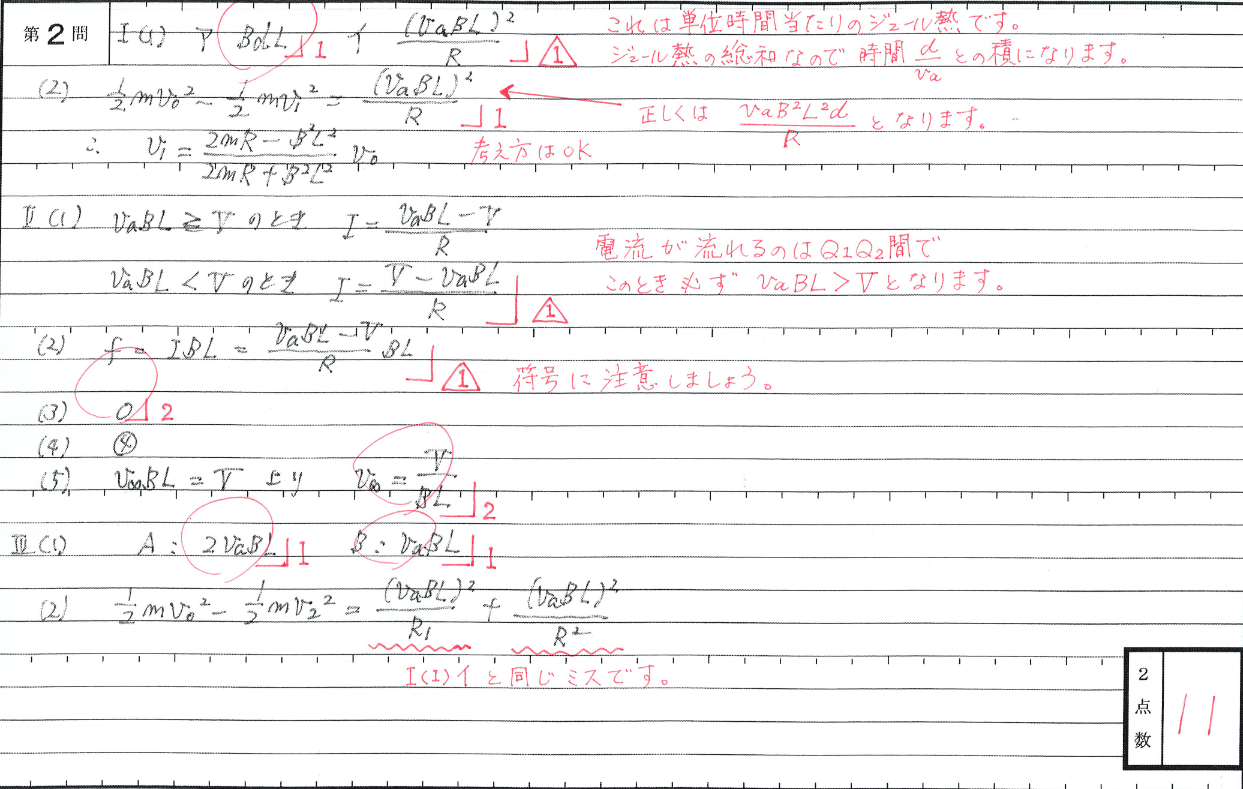 第2問 I(1) ア BdLL 1 イ (vaBL)²/R 1 これは単位時間当たりのジュール熱です。
ジュール熱の総和なので時間 d/va との積になります。
(2) 1/2 mv₀² - 1/2 mv₁² = (vaBL)²/R 1 正しくは vaB²L²d/R となります。
∴ v₁ = (2mR - B²L²)/(2mR + B²L²) v₀ 考え方はOK
II(1) vaBL ≧ V のとき I = (vaBL - V)/R
電流が流れるのはQ1Q2間で
vaBL < V のとき I = (V - vaBL)/R 1 このとき必ず vaBL > V となります。
(2) f = IBL = (vaBL - V)/R BL 1 符号に注意しましょう。
(3) 0 2
(4) ④
(5) v∞BL = V より v∞ = V/BL 2
III(1) A: 2vaBL 1 B: vaBL 1
(2) 1/2 mv₀² - 1/2 mv₂² = (vaBL)²/R₁ + (vaBL)²/R²
I(1)イと同じミスです。
2点数 11